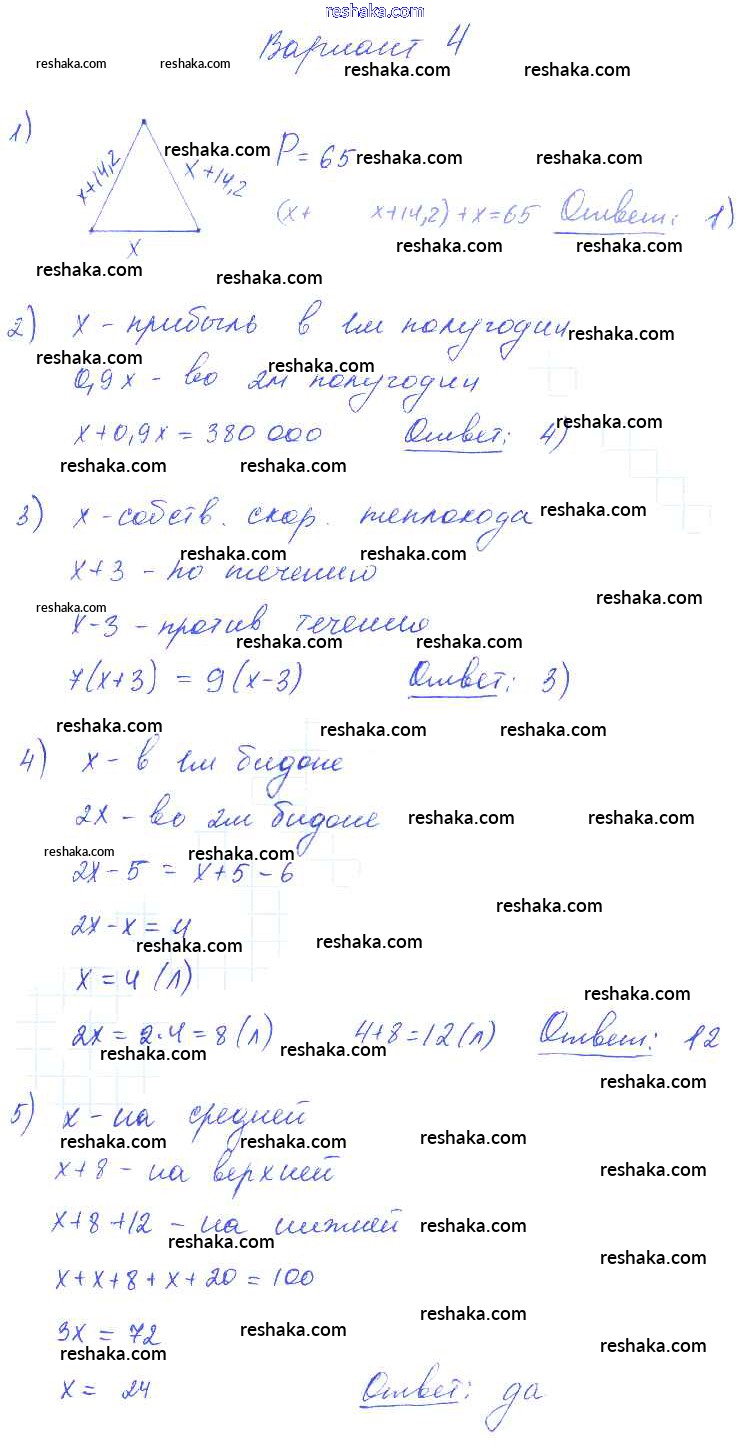 reshaka.com
Вариант 4
reshaka.com reshaka.com reshaka.com reshaka.com
1)
x+14,2 x+14,2 P=65
reshaka.com reshaka.com reshaka.com
(x+ x+14,2)+x=65 Ответ: 1)
x reshaka.com reshaka.com
reshaka.com reshaka.com
2) x - прибыль в 1м полугодии
reshaka.com
reshaka.com reshaka.com
0,9x - во 2м полугодии
x+0,9x=380 000 Ответ: 4)
reshaka.com
reshaka.com reshaka.com
3) x - собств. скор. теплохода
reshaka.com
reshaka.com reshaka.com
x+3 - по течению
reshaka.com reshaka.com
x-3 - против течению
reshaka.com reshaka.com
7(x+3) = 9(x-3) Ответ: 3)
reshaka.com reshaka.com
4) x - в 1м бидоне
2x - во 2м бидоне
reshaka.com reshaka.com
reshaka.com reshaka.com
2x-5 = x+5-6
reshaka.com
2x-x=4
reshaka.com reshaka.com
x=4 (л)
reshaka.com
2x=2·4=8(л) 4+8=12(л) Ответ: 12
reshaka.com reshaka.com
reshaka.com
5) x - на средней
reshaka.com reshaka.com reshaka.com
x+8 - на верхней
reshaka.com
x+8+12 - на нижней
reshaka.com
reshaka.com reshaka.com
x+x+8+x+20=100
reshaka.com
3x = 72
reshaka.com
reshaka.com reshaka.com
x = 24 Ответ: да